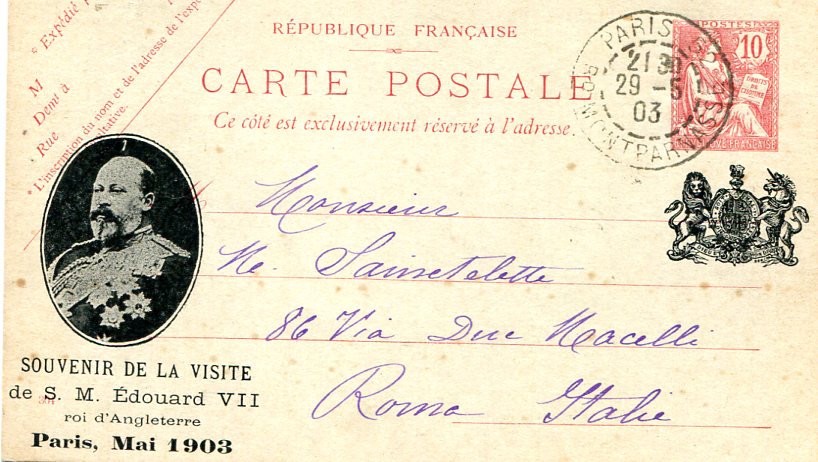 * Expédié p
M
Demt à
Rue
* L'inscription du nom et de l'adresse de l'expé
ltative.
RÉPUBLIQUE FRANÇAISE
CARTE POSTALE
Ce côté est exclusivement réservé à l'adresse.
PARIS
21 30
29 - 5
03
MONTPARNASSE
POSTES
10
DROITS
DE
Monsieur
Me. Sainctelette
86 Via Due Macelli
Roma Italie
SOUVENIR DE LA VISITE
de S. M. Édouard VII
roi d'Angleterre
Paris, Mai 1903